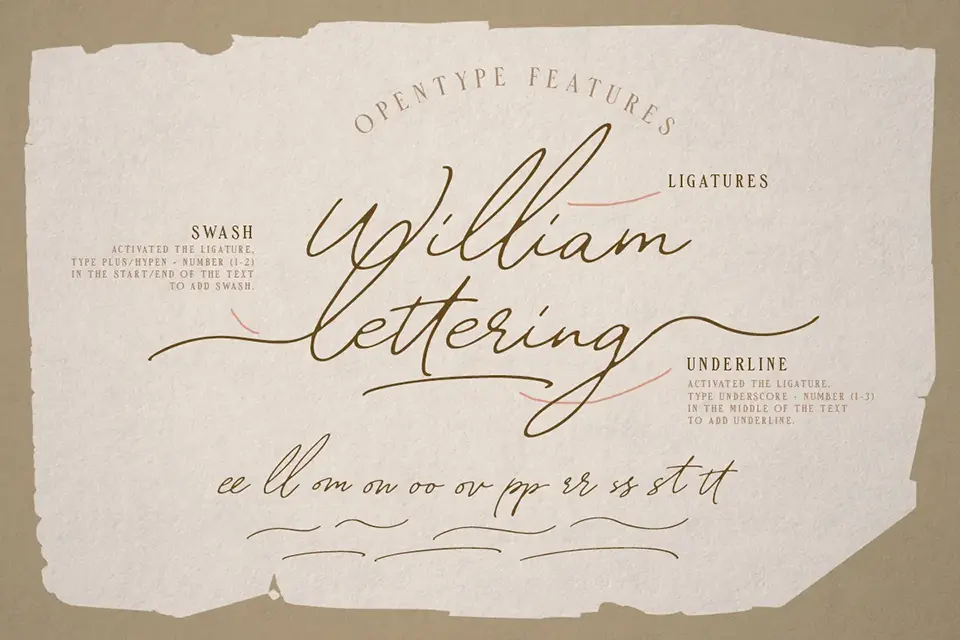 OPENTYPE FEATURES
William
LIGATURES
SWASH
ACTIVATED THE LIGATURE,
TYPE PLUS/HYPEN + NUMBER (1-2)
IN THE START/END OF THE TEXT
TO ADD SWASH.
lettering
UNDERLINE
ACTIVATED THE LIGATURE,
TYPE UNDERSCORE + NUMBER (1-3)
IN THE MIDDLE OF THE TEXT
TO ADD UNDERLINE.
ee ll om on oo ov pp rr ss st tt